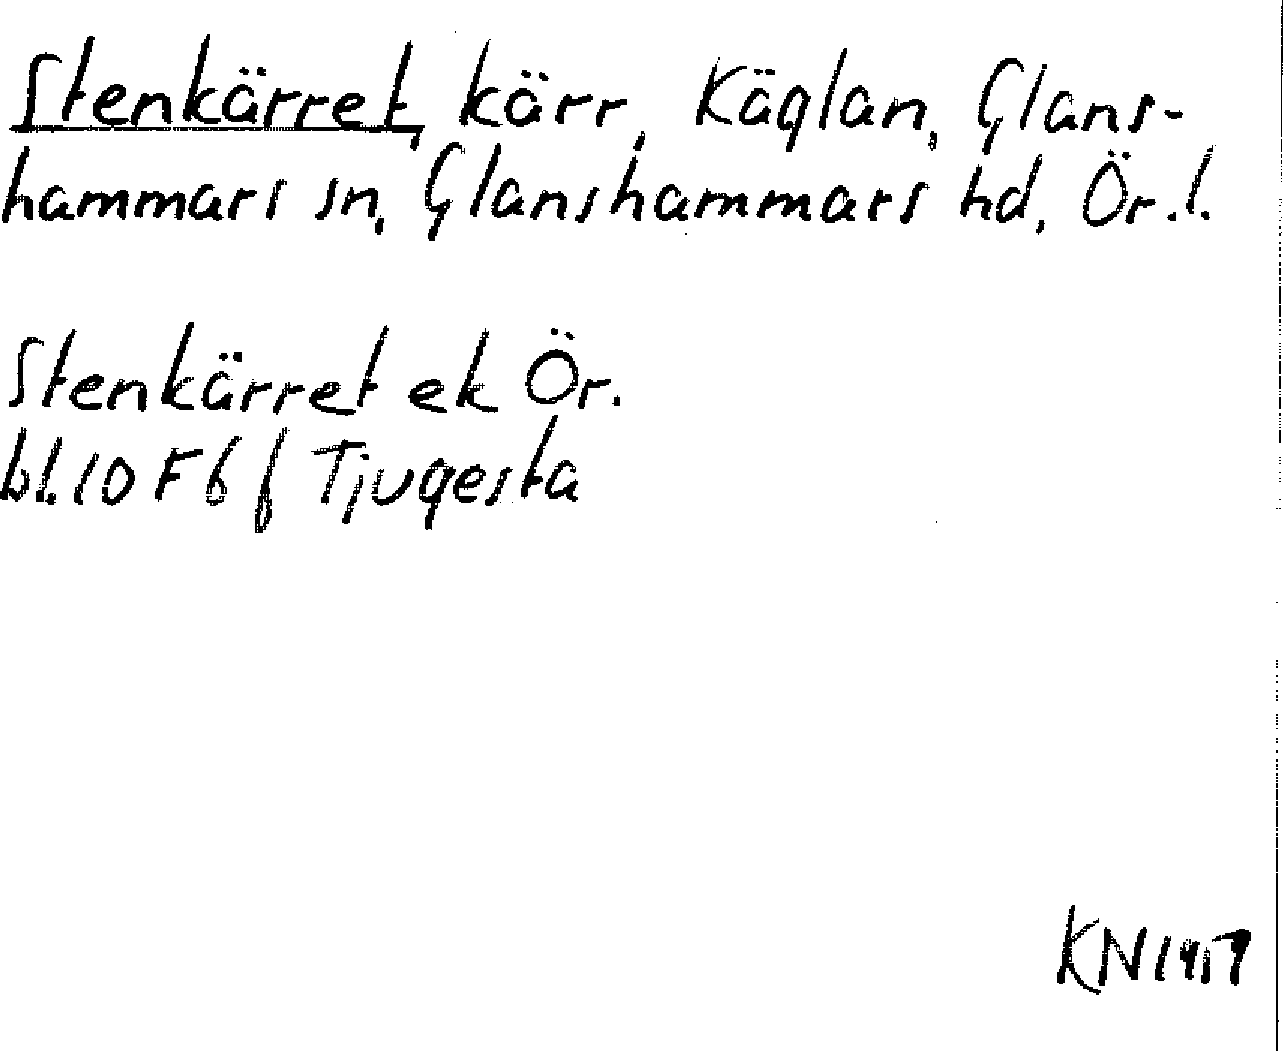 Stenkärret, kärr, Käglan, Glans-
hammars sn, Glanshammars hd, Ör.l.
Stenkärret ek Ör.
bl.10 F 6 f Tjugesta